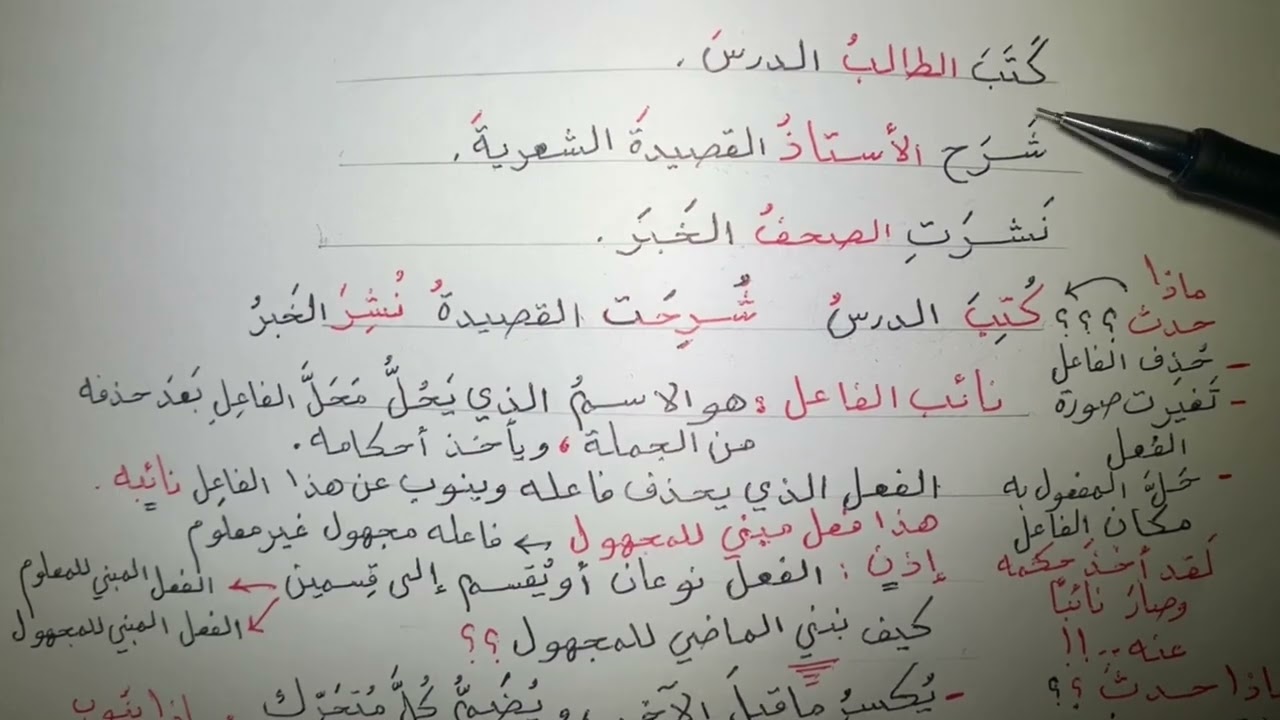 كَتَبَ الطالبُ الدرسَ .
شَرَح الأستاذُ القصيدةَ الشعريةَ .
نَشرَتِ الصحفُ الخَبَرَ .
ماذا
حدث ؟؟؟ كُتِبَ الدرسُ شُرِحَت القصيدةُ نُشِرَ الخَبرُ
- حُذِف الفاعل
- تَغيرت صورة
الفعل
نائب الفاعل : هو الاسمُ الذي يَحُلُّ مَحَلَّ الفاعِلِ بَعَدَ حذفه
من الجملة ، ويأخذ أحكامه .
- حَلَّ المفعول به
مكان الفاعل
الفعل الذي يحذف فاعله وينوب عن هذا الفاعِل نائبِه .
هذا فعل مبني للمجهول ← فاعله مجهول غير معلوم
لَقد أخذَ حكمه
وصارَ نائبًا
عنه ..!!
إذنٍ : الفعل نوعان أو يُقسم إلى قِسمين ← الفعل المبني للمعلوم
الفعل المبني للمجهول
كيف نبني الماضي للمجهول ؟؟
حدث ؟؟
- يُكسرُ ما قبلَ الآخر ، ويُضَمُّ كُلُّ مُتَحَرِّك